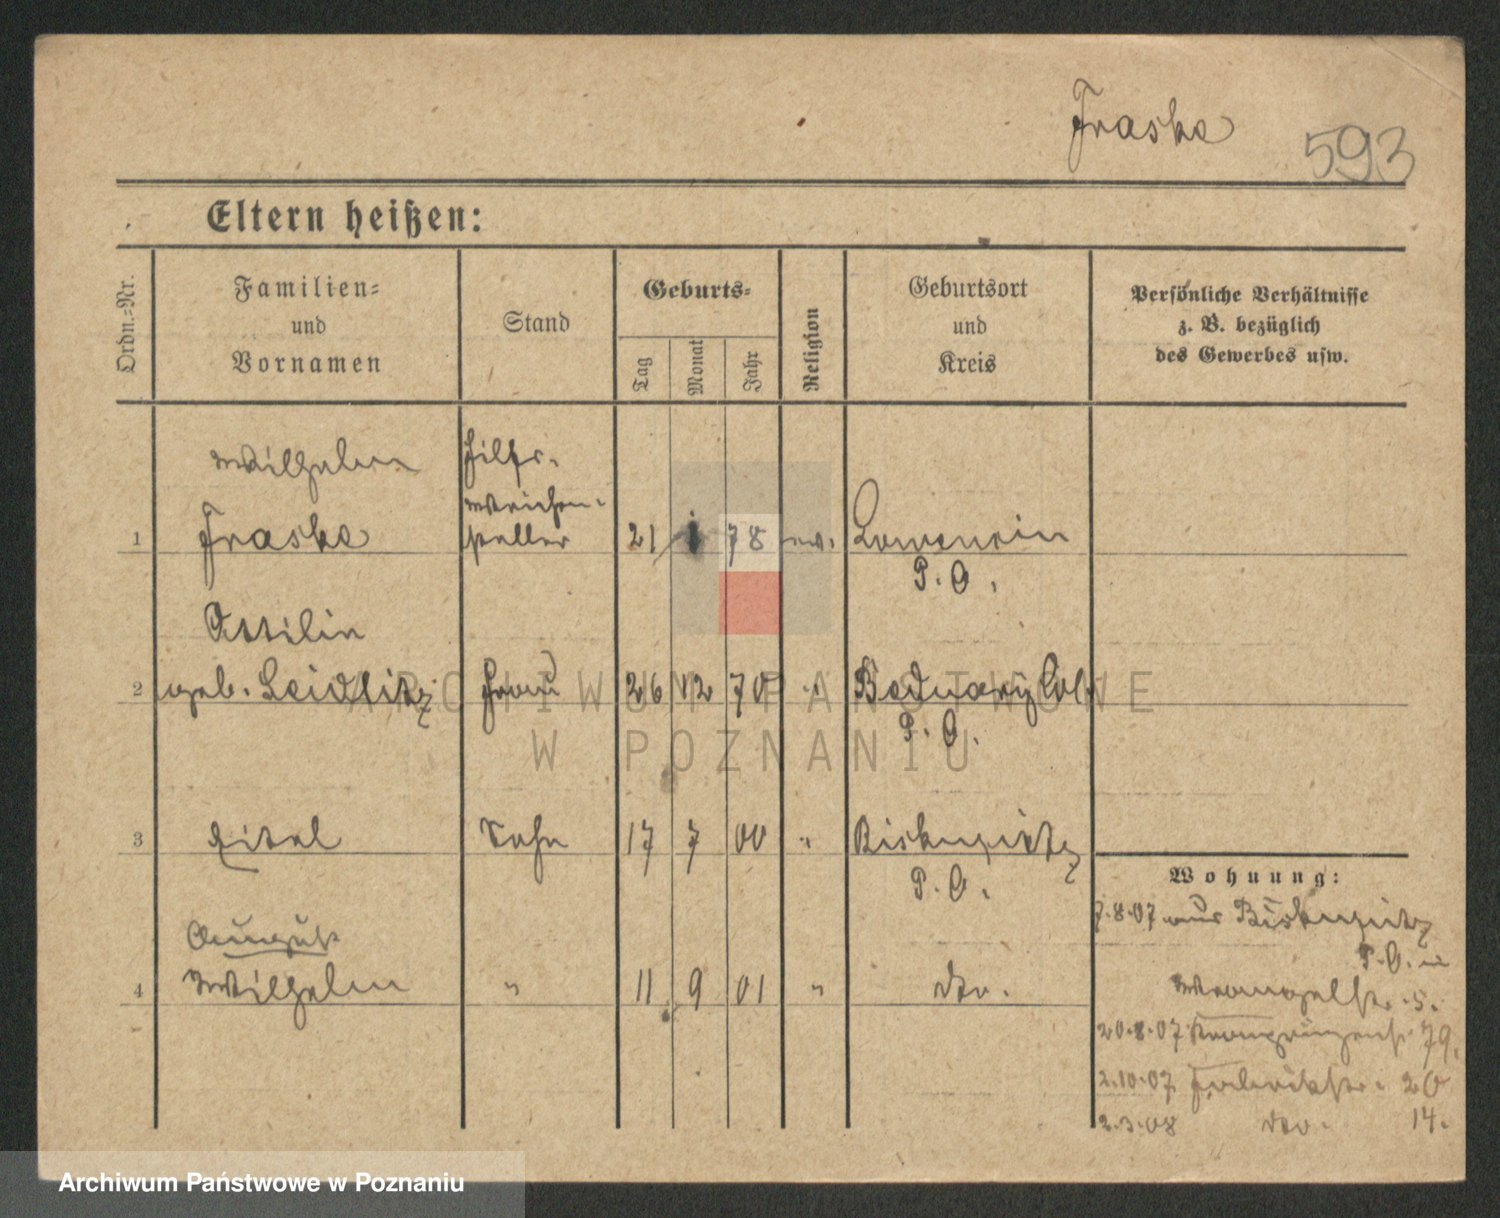 Fraske 593
Eltern heißen:
Ordn.-Nr.
Familien-
und
Vornamen
Stand
Geburts-
Tag
Monat
Jahr
Religion
Geburtsort
und
Kreis
Persönliche Verhältnisse
z. B. bezüglich
des Gewerbes usw.
Wilhelm
Hilfs-
weichen-
1 Fraske steller 21 1 78 ev. Lowencin
P. O.
Ottilin
2 geb. Seidlitz Frau 26 12 70 " Bednary Col.
P. O.
3 Eitel Sohn 17 7 00 " Biskupitz
P. O.
August
4 Wilhelm " 11 9 01 " do.
Wohnung:
7.8.07 aus Biskupitz
P. O. n
Wrangelstr. 5.
20.8.07 Kronprinzenst. 79.
2.10.07 Fabrikstr. 20
2.3.08 do. 14.
ARCHIWUM PAŃSTWOWE
W POZNANIU
Archiwum Państwowe w Poznaniu